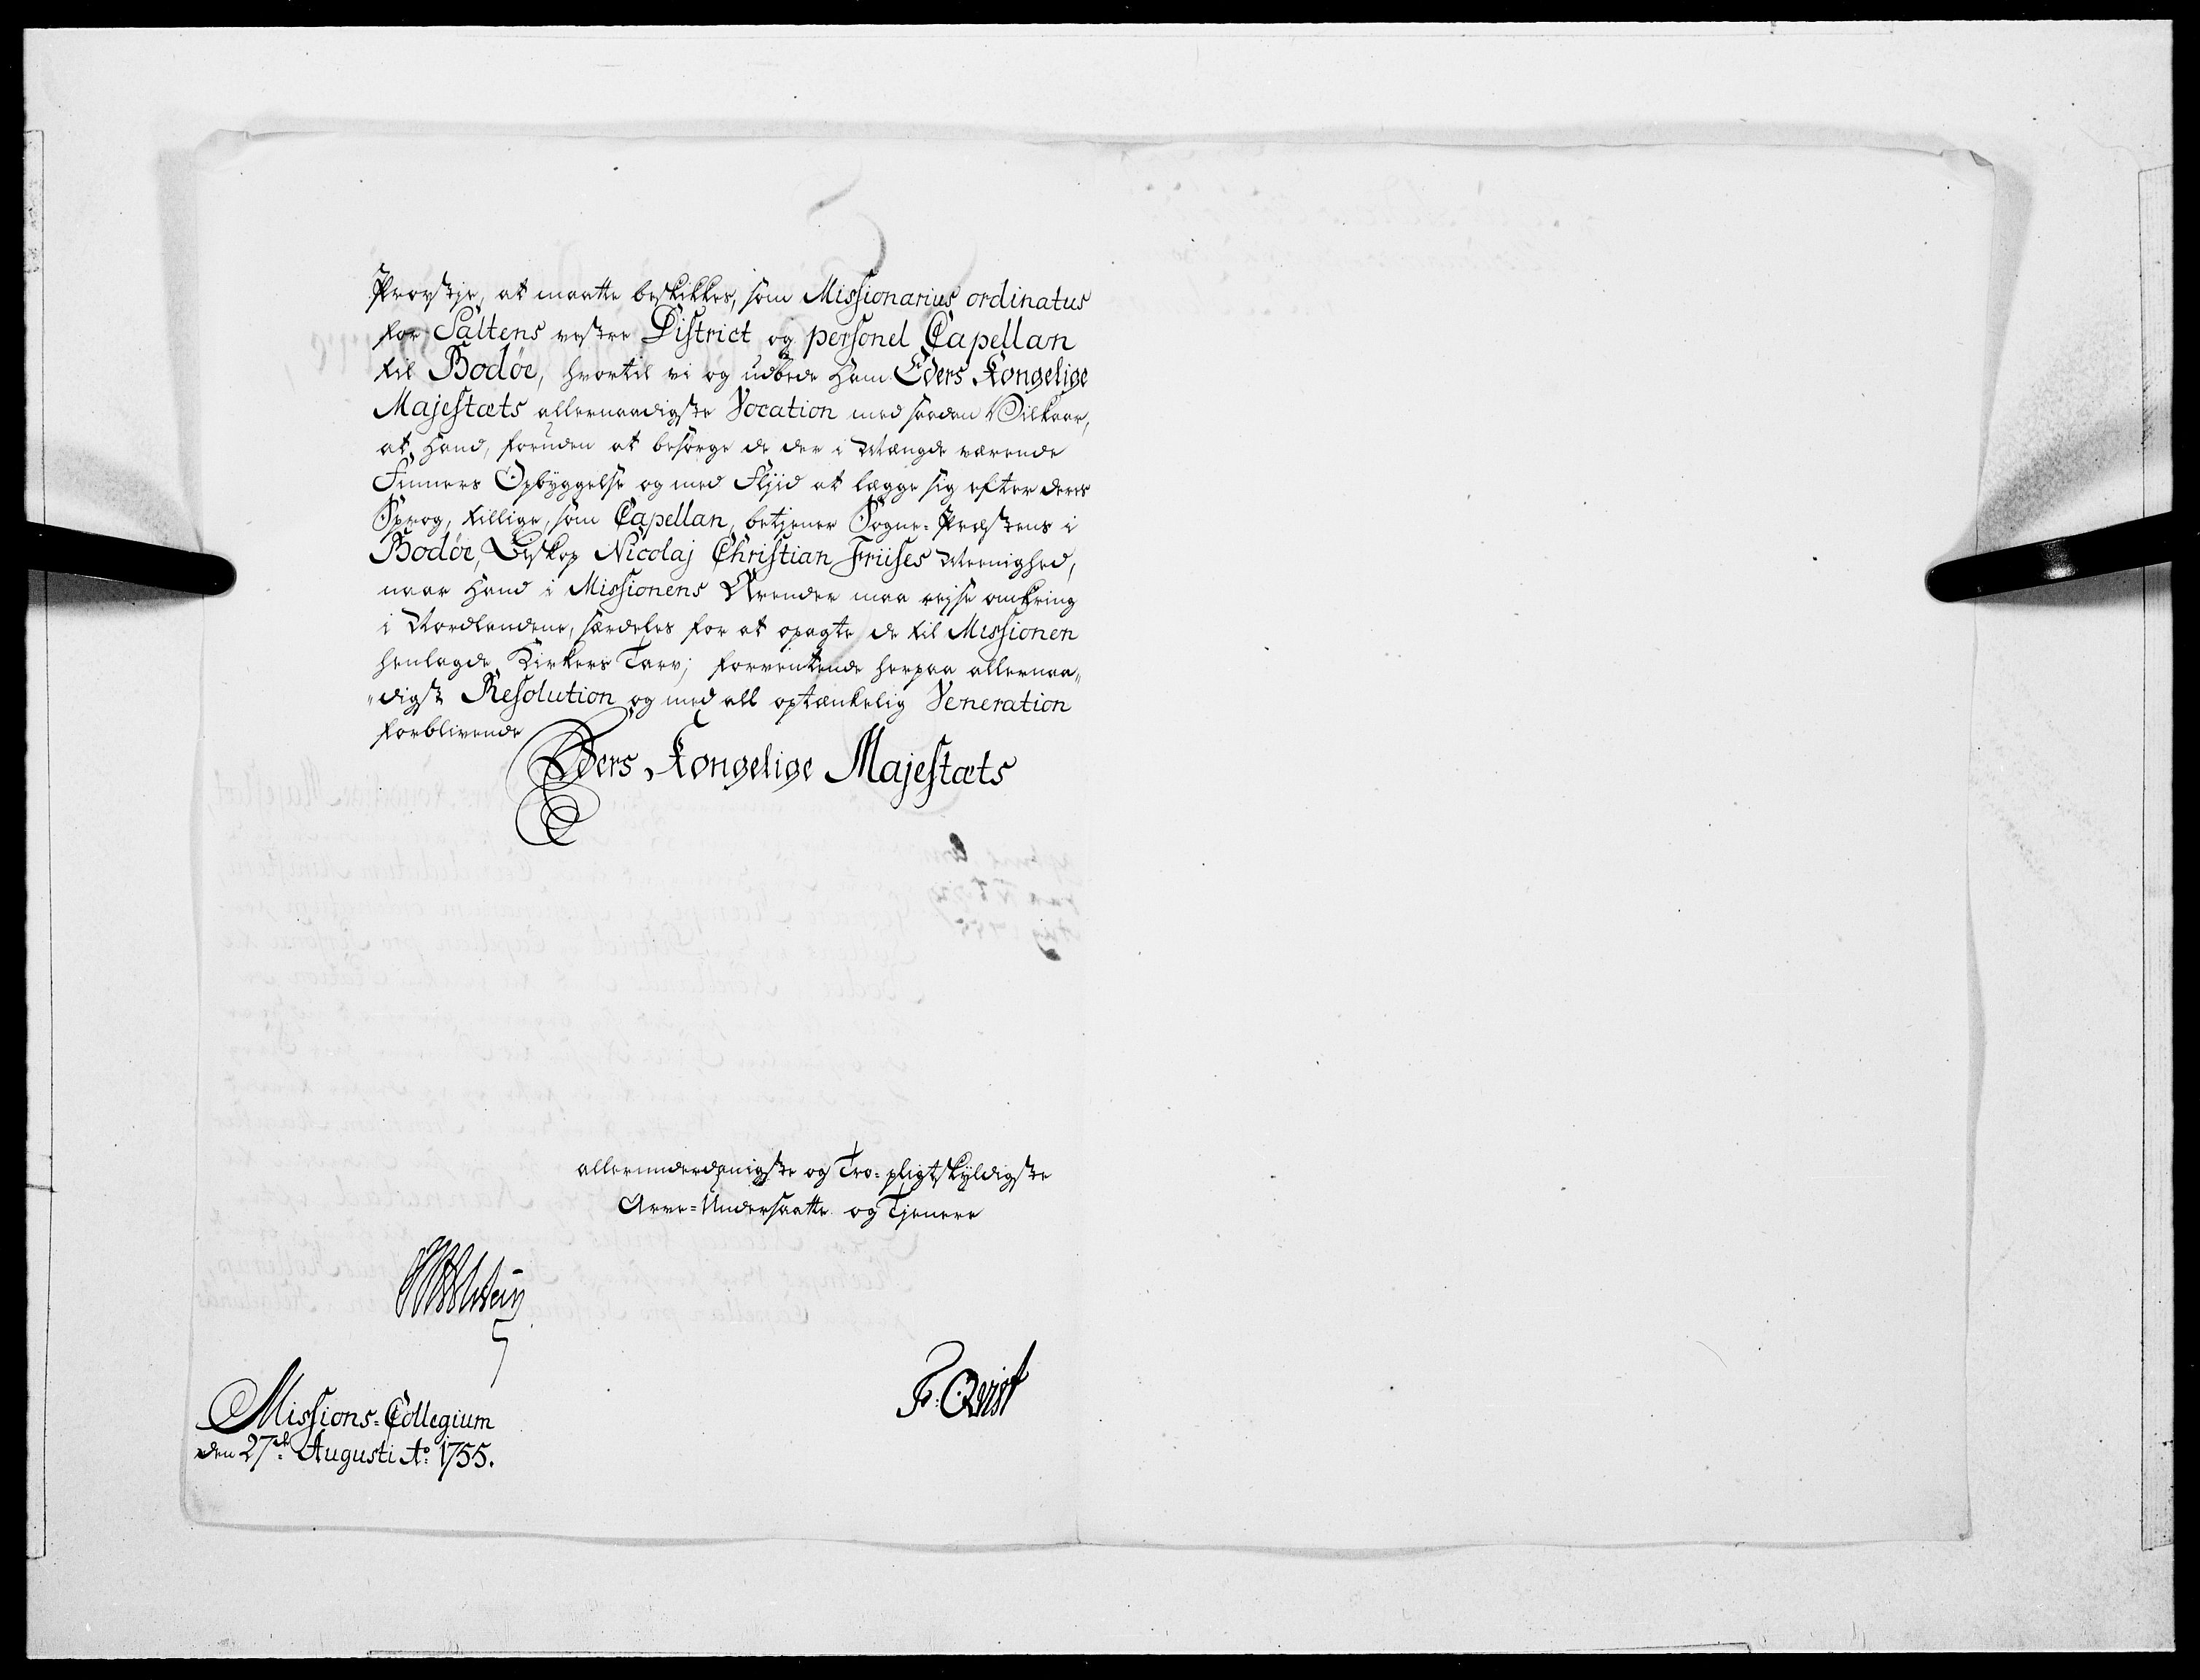 Provstje, at maatte beskikkes, som Missionarius ordinatus
for Saltens vestre District og personel Capellan
til Bodøe, hvortil vi og udbede Ham Eders Kongelige
Majestæts allernaadigste Vocation med saadan Vilkaar,
at Hand, foruden at besørge de der i Mængde værende
Finners Opbyggelse og med Fljid at lægge sig efter deres
Sprog, tillige, som Capellan, betjener Sogne-Præstens i
Bodøe, Biskop Nicolaj Christian Friises Meenighed,
naar Hand i Missionens Ærender maa rejse omkring
i Nordlandene, særdeles for at opagte de til Missionen
henlagde Kirkers Tarv; forventende herpaa allernaa„
„digst Resolution og med all optænkelig Veneration
forblivende
Eders Kongelige Majestæts
allerunderdanigste og Tro-pligtskyldigste
Arve-Undersaatte og Tjenere
F: Qvist
Missions-Collegium
den 27de Augusti Ao 1755.